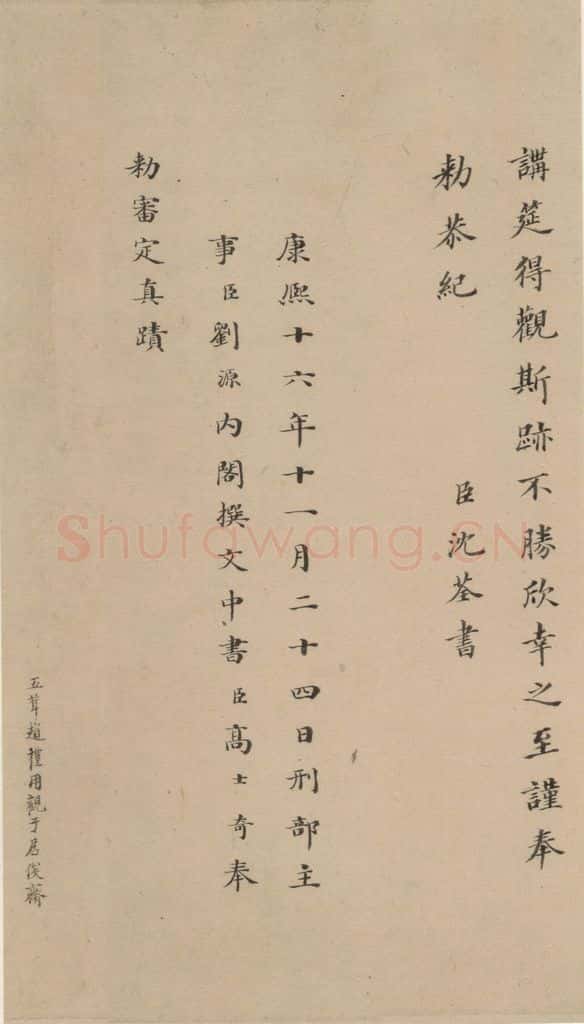 講筵得觀斯跡不勝欣幸之至謹奉
勑恭紀 臣沈荃書
康熈十六年十一月二十四日刑部主
事臣劉源内閣撰文中書臣高士奇奉
勑審定真蹟
五茸趙權用觀于居俟齋
Shufawang.CN